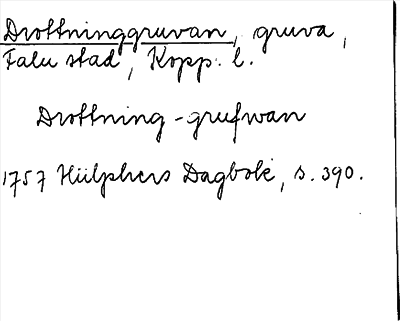 Drottninggruvan, gruva,
Falu stad, Kopp. l.
Drottning-grufwan
1757 Hülphers Dagbok, s. 390.